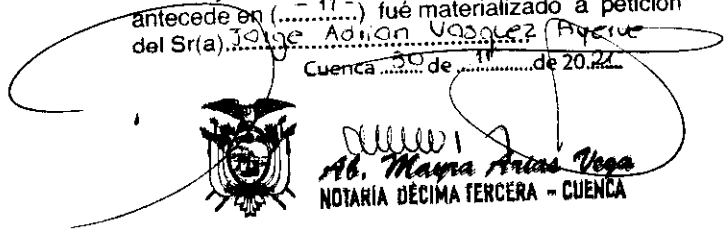 antecede en (...- 17 -...) fué materializado a petición
del Sr(a). Jorge Adrian Vasquez
Cuenca 30 de 11 de 2021
Ab. Mayra Artas Vega
NOTARÍA DÉCIMA TERCERA - CUENCA